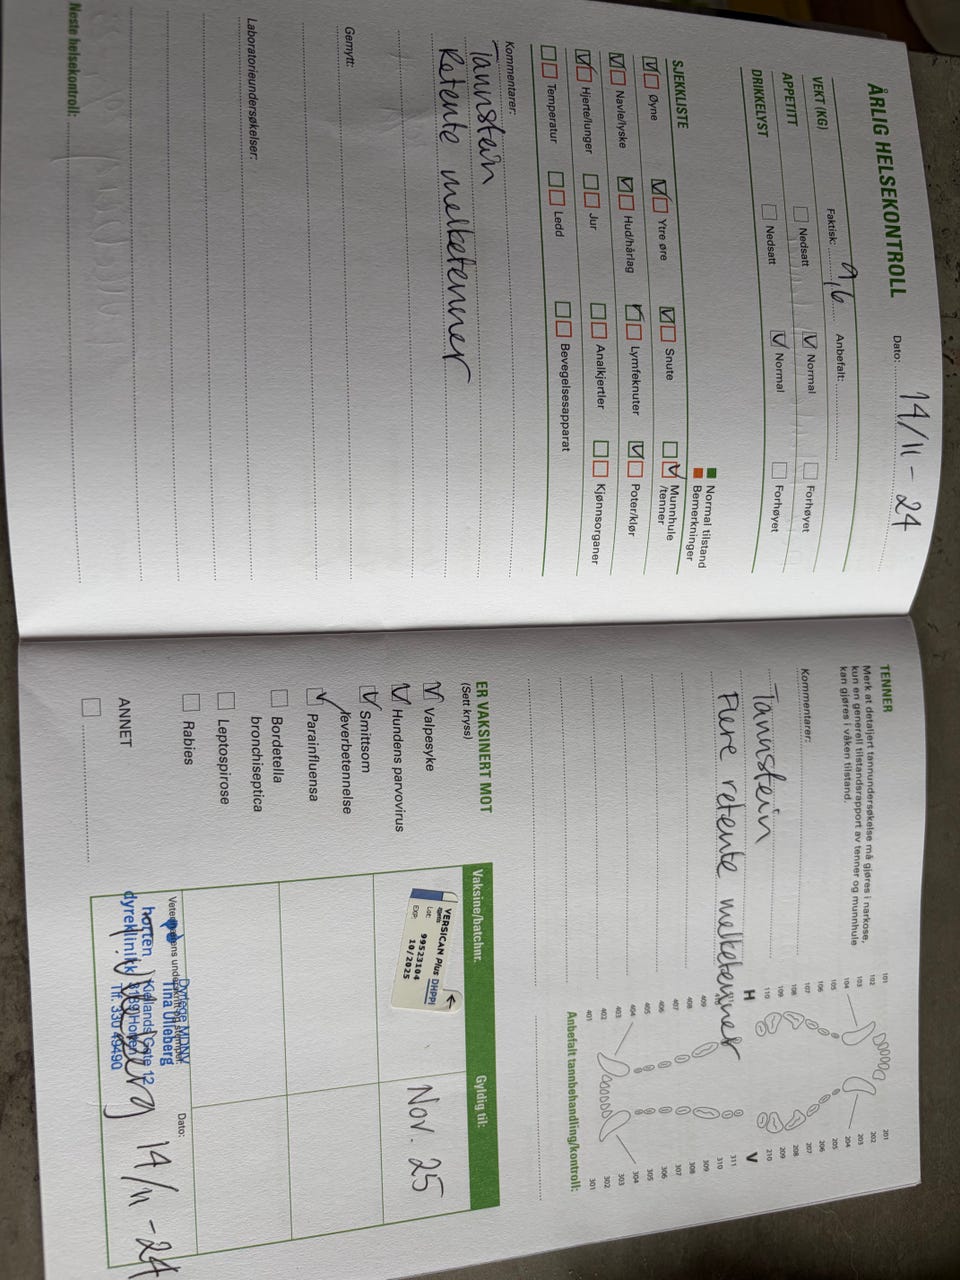 ÅRLIG HELSEKONTROLL
Dato: 14/11 - 24
VEKT (KG) Faktisk: 9,6 Anbefalt:
APPETITT Nedsatt Normal Forhøyet
DRIKKELYST Nedsatt Normal Forhøyet
Normal tilstand
Bemerkninger
SJEKKLISTE
Øyne Ytre øre Snute Munnhule /tenner
Navle/lyske Hud/hårlag Lymfeknuter Poter/klør
Hjerte/lunger Jur Analkjertler Kjønnsorganer
Temperatur Ledd Bevegelsesapparat
Kommentarer:
Tannstein
Retente melketenner
Gemytt:
Laboratorieundersøkelser:
Neste helsekontroll:
TENNER
Merk at detaljert tannundersøkelse må gjøres i narkose,
kun en generell tilstandsrapport av tenner og munnhule
kan gjøres i våken tilstand.
Kommentarer:
Tannstein
Flere retente melketenner
101
102
103
104
105
106
107
108
109
110
201
202
203
204
205
206
207
208
209
210
H V
409
408
407
406
405
404
403
402
401
311
310
309
308
307
306
305
304
303
302
301
Anbefalt tannbehandling/kontroll:
ER VAKSINERT MOT
(Sett kryss)
Valpesyke
Hundens parvovirus
Smittsom
leverbetennelse
Parainfluensa
Bordetella
bronchiseptica
Leptospirose
Rabies
ANNET
Vaksine/batchnr. Gyldig til:
VERSICAN Plus DHPPi
Lot: 99523104
EXP: 10/2025
Nov. 25
Dyrlege MDNV
Tina Ulleberg
horten Kirkelands Gate 12
dyreklinikk
Tlf. 330 49490
Dato:
14/11 - 24